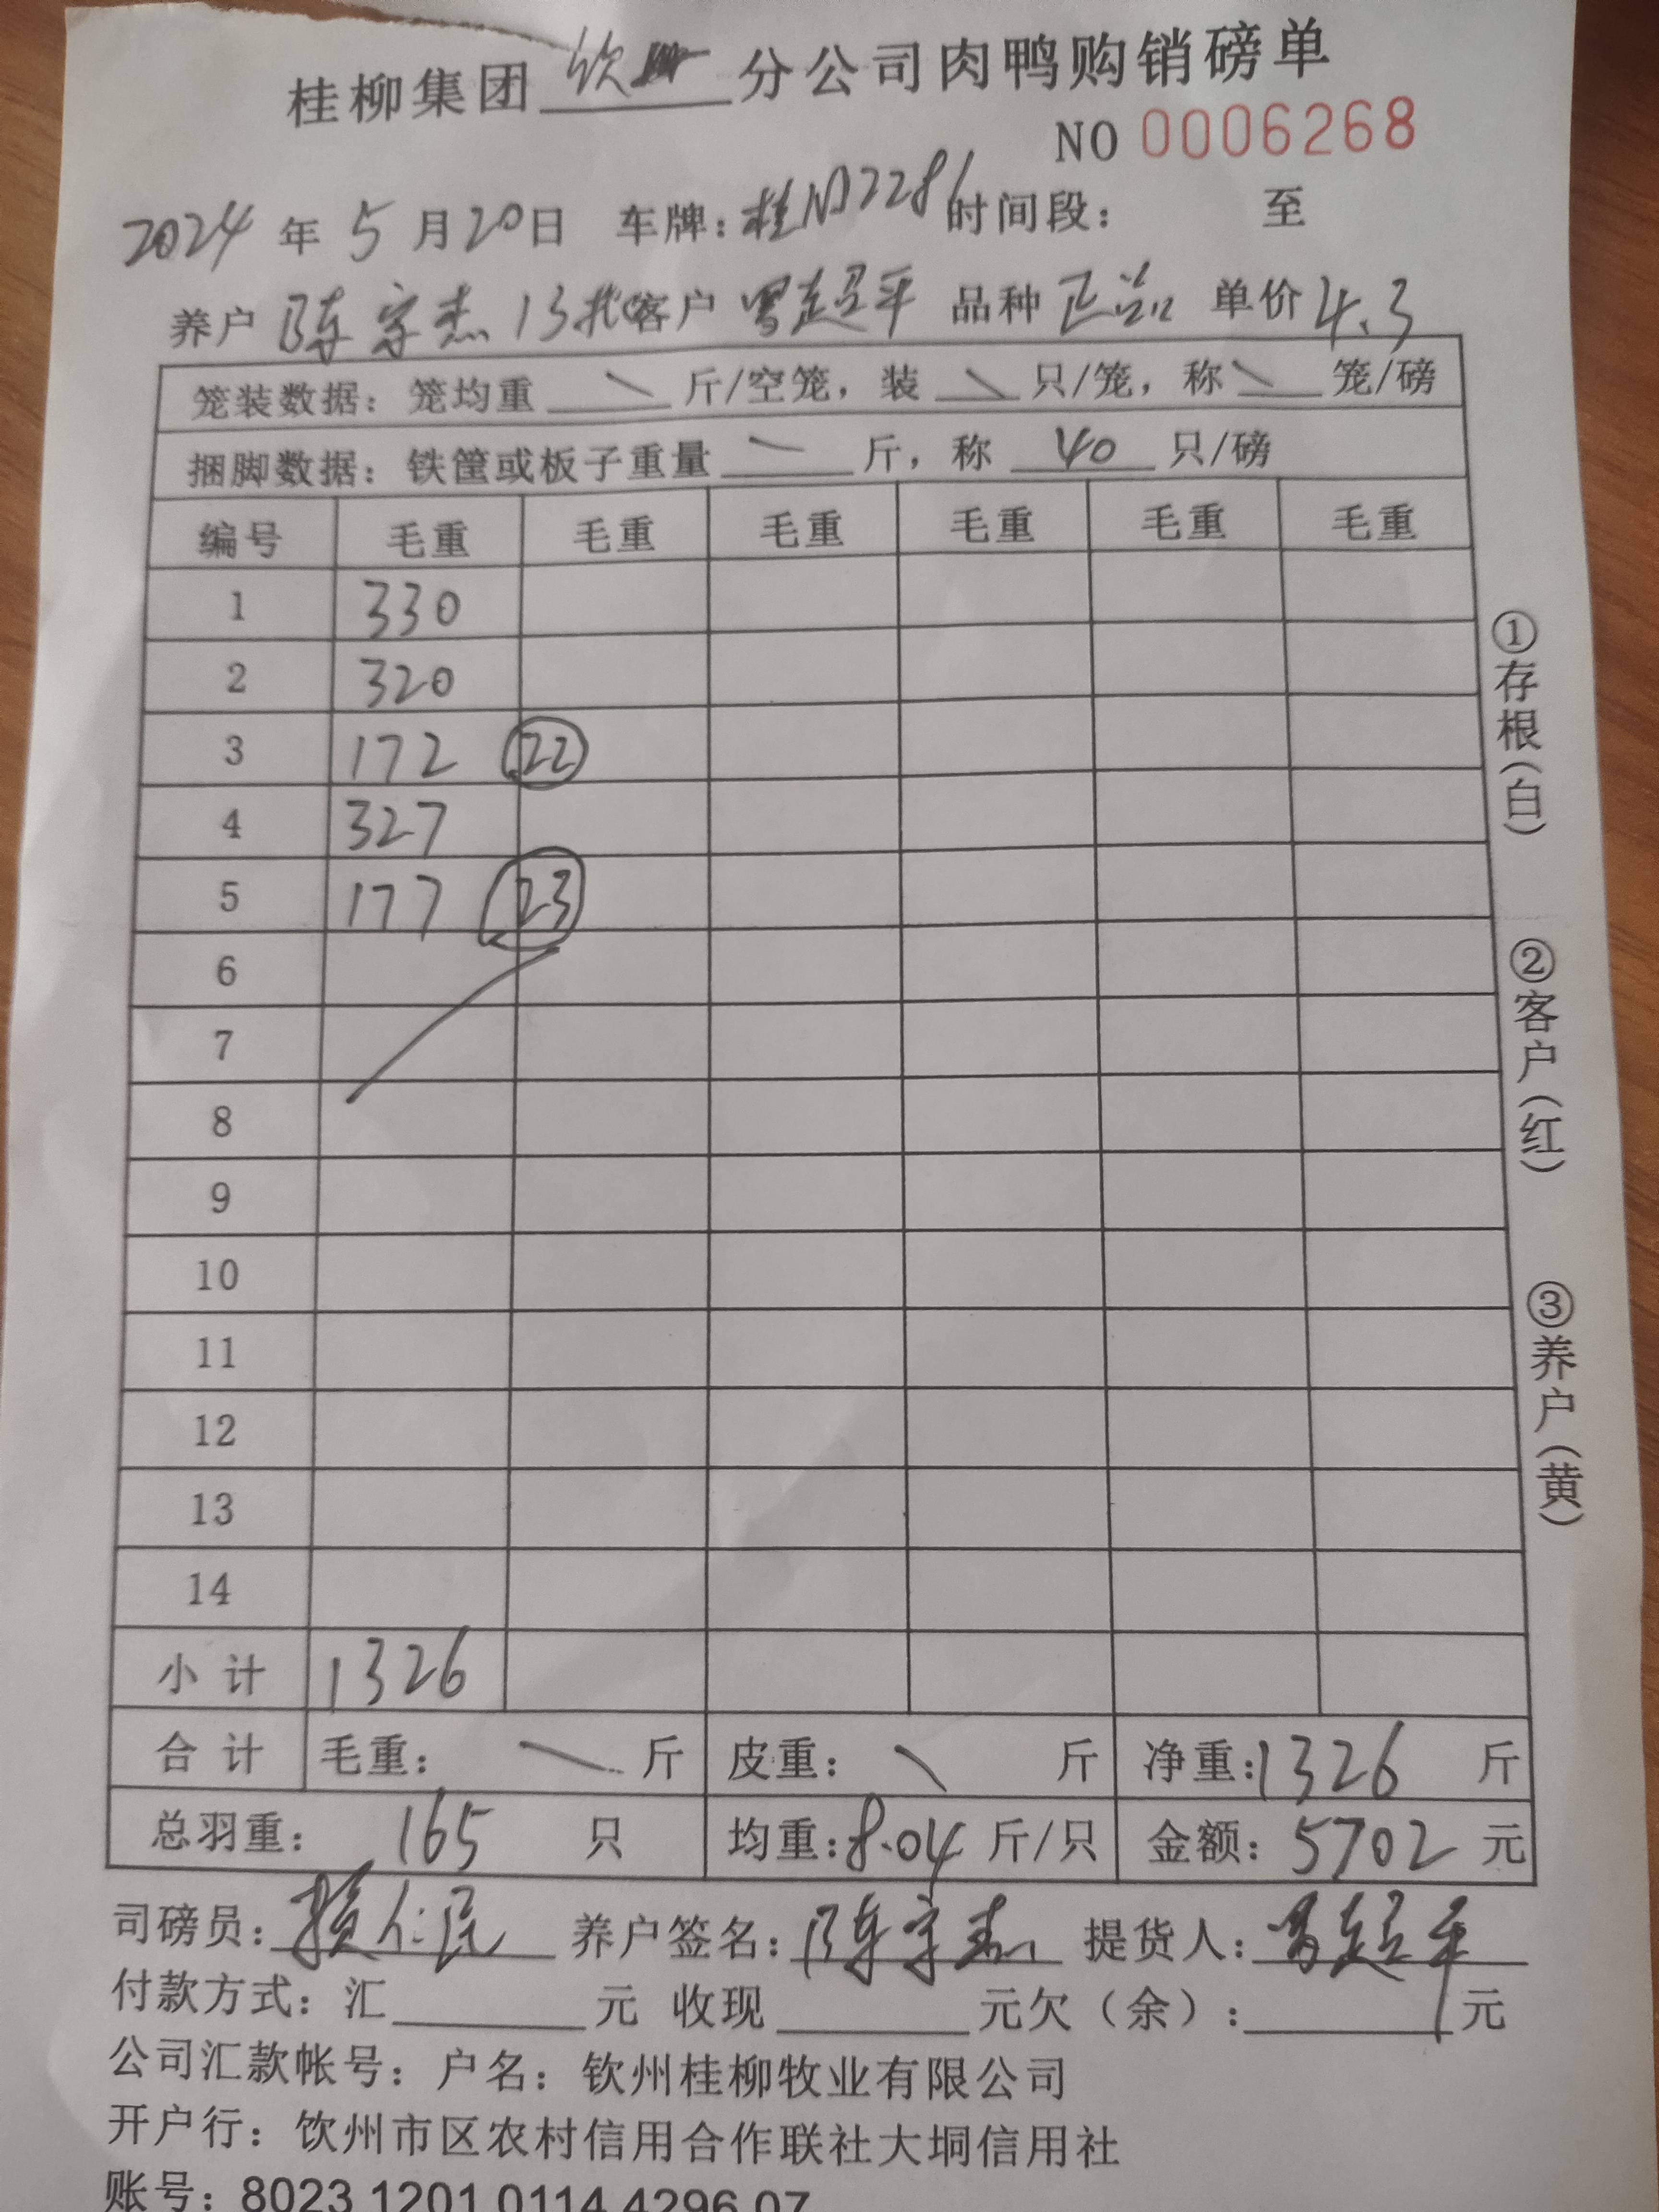 桂柳集团 钦州 分公司肉鸭购销磅单
NO 0006268
2024 年 5 月 20 日 车牌: 桂ND2286 时间段: 至
养户 陈宗杰 13批 客户 曾超平 品种 正品 单价 4.3
笼装数据: 笼均重 \ 斤/空笼, 装 \ 只/笼, 称 \ 笼/磅
捆脚数据: 铁筐或板子重量 \ 斤, 称 40 只/磅
编号 毛重 毛重 毛重 毛重 毛重 毛重
1 330
2 320
3 172 22
4 327
5 177 23
6
7
8
9
10
11
12
13
14
小计 1326
合计 毛重: \ 斤 皮重: \ 斤 净重: 1326 斤
总羽重: 165 只 均重: 8.04 斤/只 金额: 5702 元
①存根(白)
②客户(红)
③养户(黄)
司磅员: 赖仁民 养户签名: 陈宗杰 提货人: 曾超平
付款方式: 汇 元 收现 元欠(余): 元
公司汇款帐号: 户名: 钦州桂柳牧业有限公司
开户行: 钦州市区农村信用合作联社大垌信用社
账号: 8023 1201 0114 4296 07